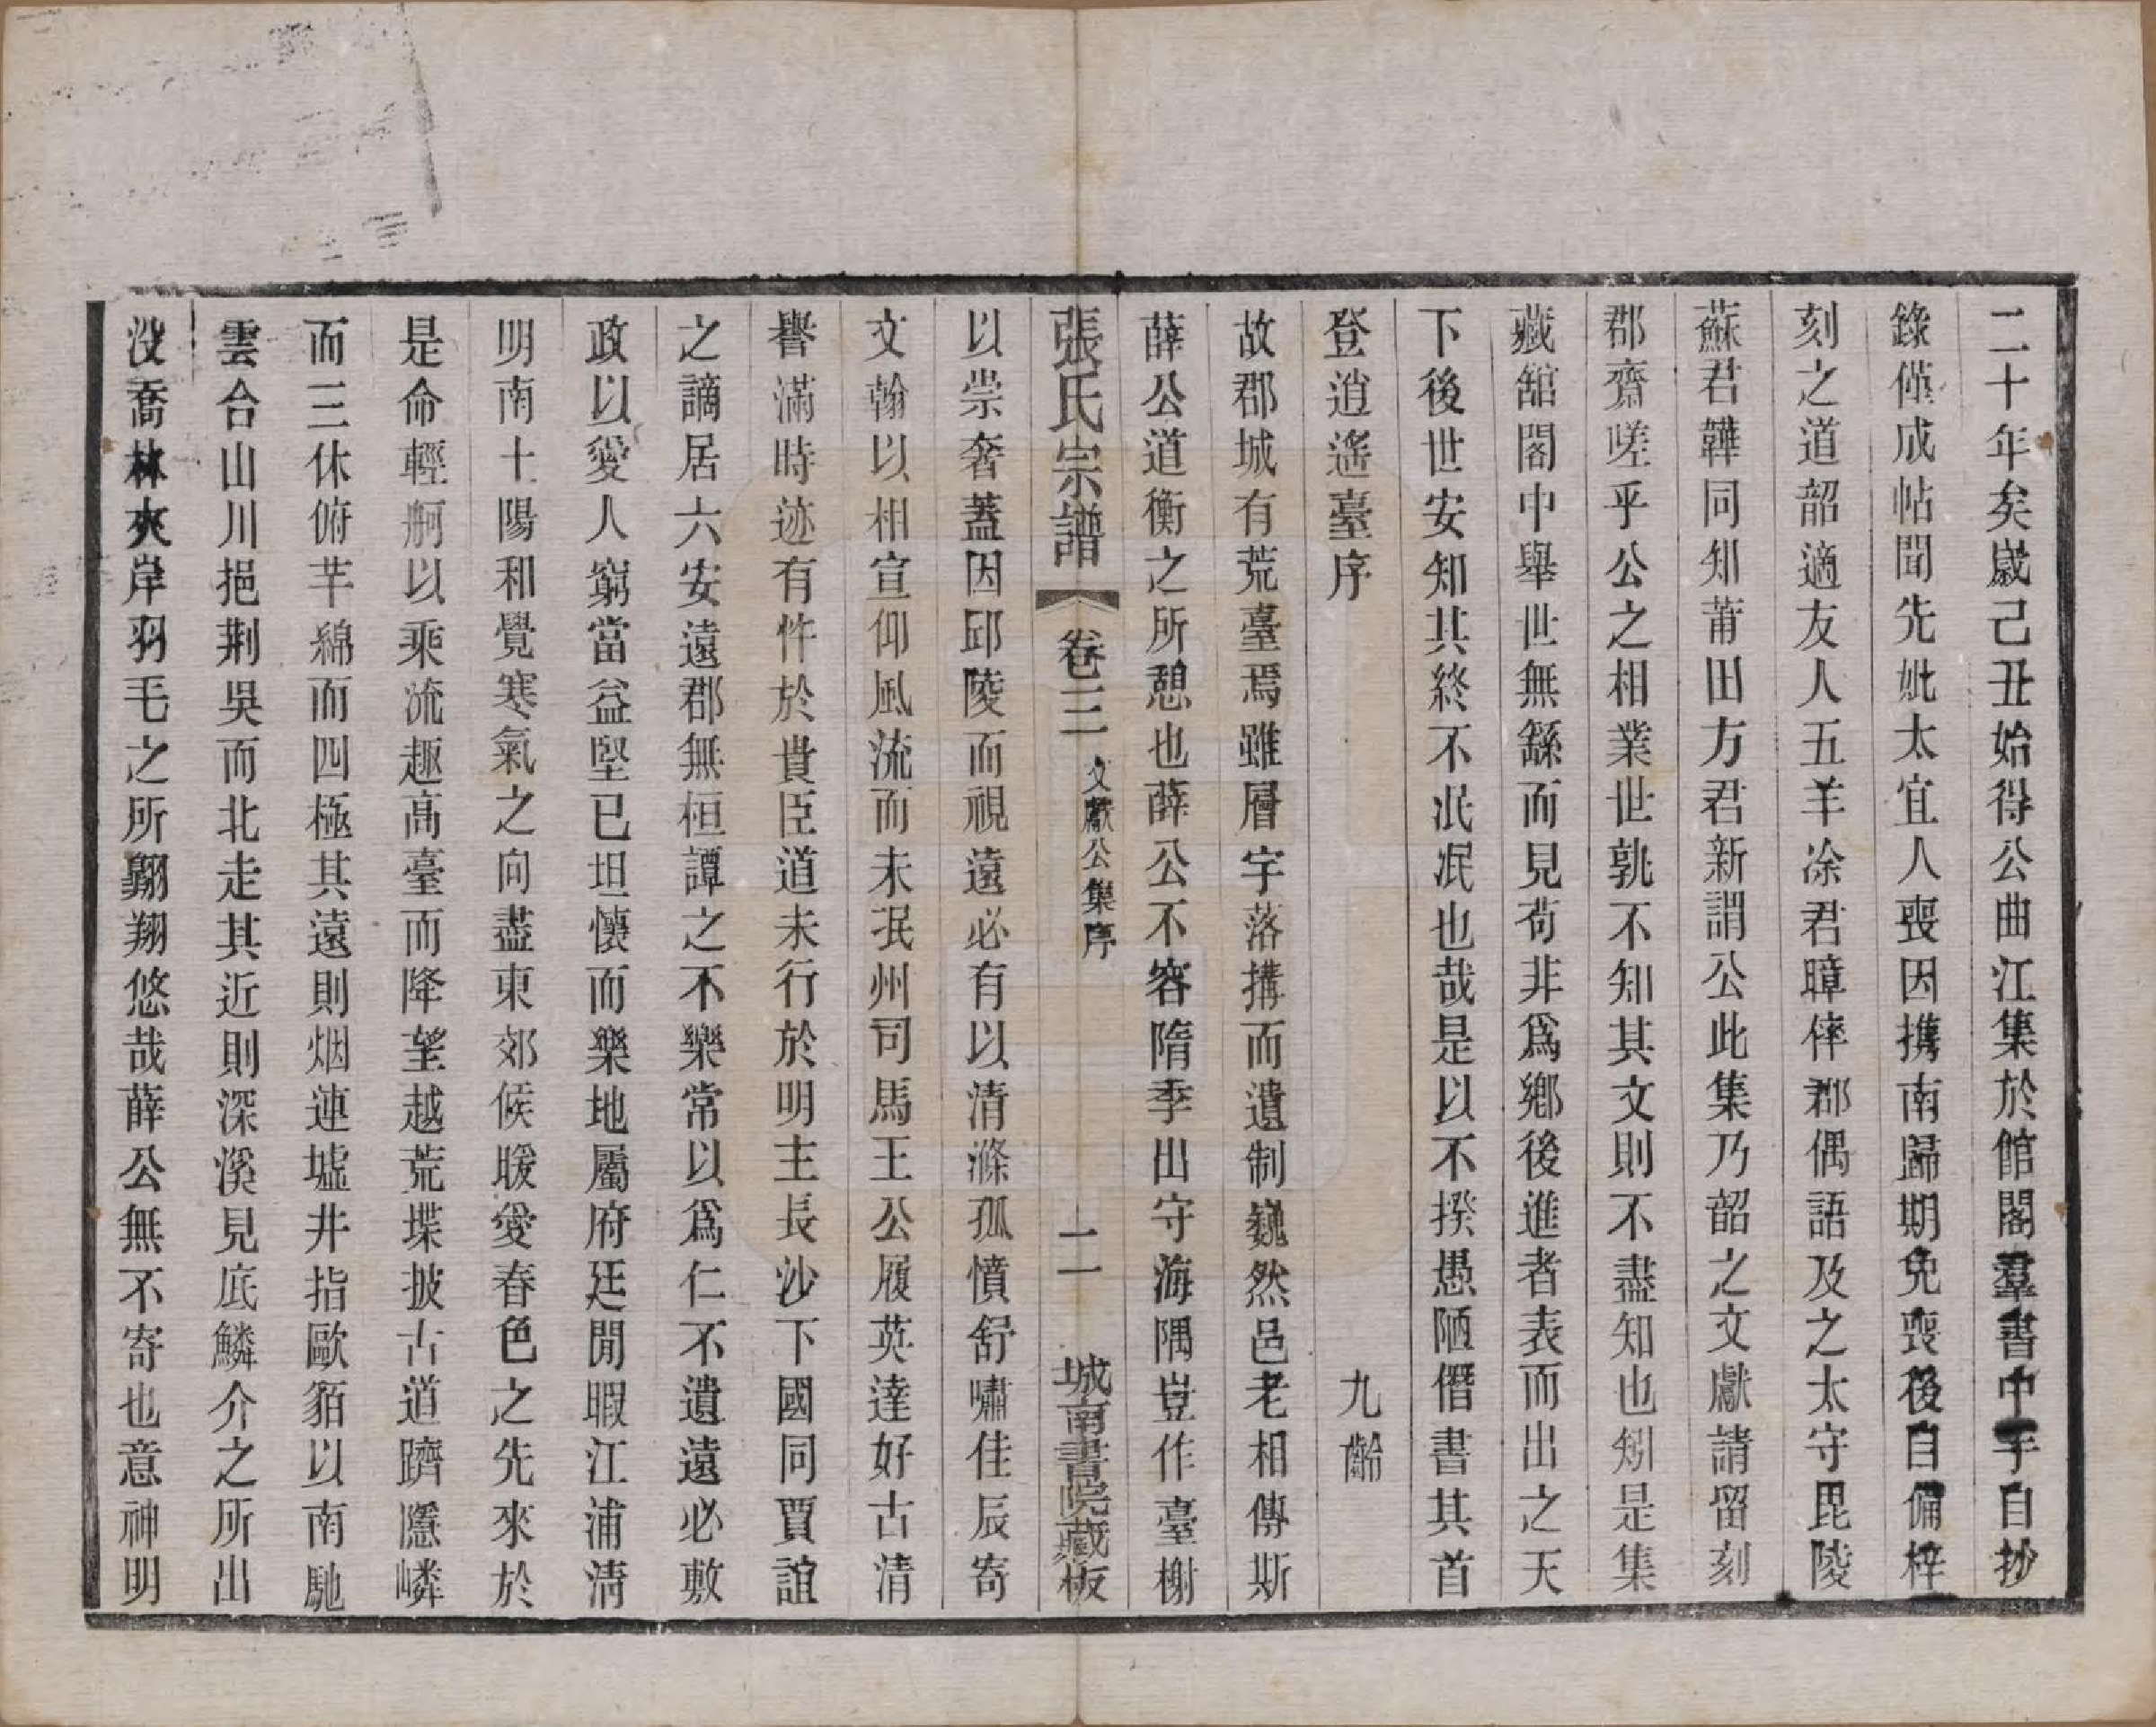 二十年矣嵗己丑始得公曲江集於館閣羣書中手自抄
錄僅成帖聞先妣太宜人喪因携南歸期免喪後自偹梓
刻之道韶適友人五羊凃君暲倅郡偶語及之太守毘陵
蘇君韡同知莆田方君新謂公此集乃韶之文獻請留刻
郡齋嗟乎公之相業世孰不知其文則不盡知也矧是集
藏舘閣中舉世無繇而見茍非爲鄉後進者表而出之天
下後世安知其終不泯泯也哉是以不揆愚陋僭書其首
登逍遙臺序 九齡
故郡城有荒臺焉雖層宇落搆而遺制巍然邑老相傳斯
薛公道衡之所憩也薛公不容隋季出守海隅豈作臺榭
張氏宗譜 卷三 文獻公集序 二 城南書院藏板
以崇奢蓋因邱陵而視遠必有以清滌孤憤舒嘯佳辰寄
文翰以相宣仰風流而未泯州司馬王公履英達好古清
譽滿時迹有忤於貴臣道未行於明主長沙下國同賈誼
之謫居六安遠郡無桓譚之不樂常以爲仁不遺遠必敷
政以愛人窮當益堅已坦懷而樂地屬府廷閒暇江浦清
明南土陽和覺寒氣之向盡東郊候暖愛春色之先來於
是命輕舸以乘流趣高臺而降望越荒堞披古道躋隱嶙
而三休俯芊綿而四極其遠則烟連墟井指歐貊以南馳
雲合山川挹荆吳而北走其近則深溪見底鱗介之所出
没喬林夾岸羽毛之所翺翔悠哉薛公無不寄也意神明